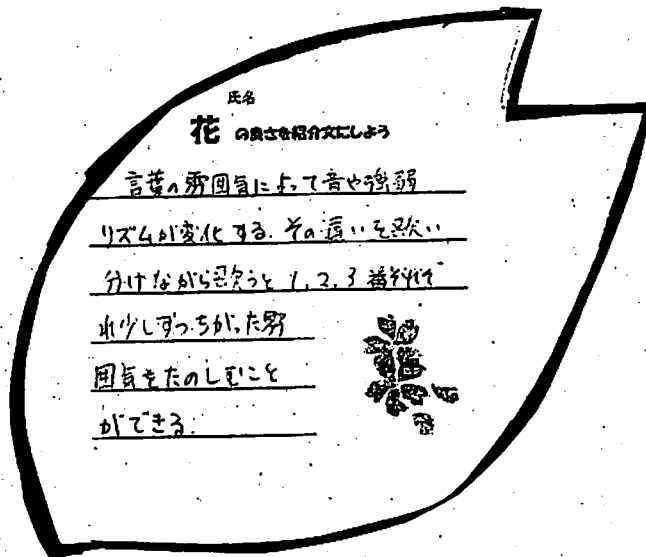 氏名
花 の良さを紹介文にしよう
言葉の雰囲気によって音や強弱
リズムが変化する。その違いを歌い
分けながら歌うと1,2,3番それぞ
れ少しずつちがった雰
囲気をたのしむこと
ができる。